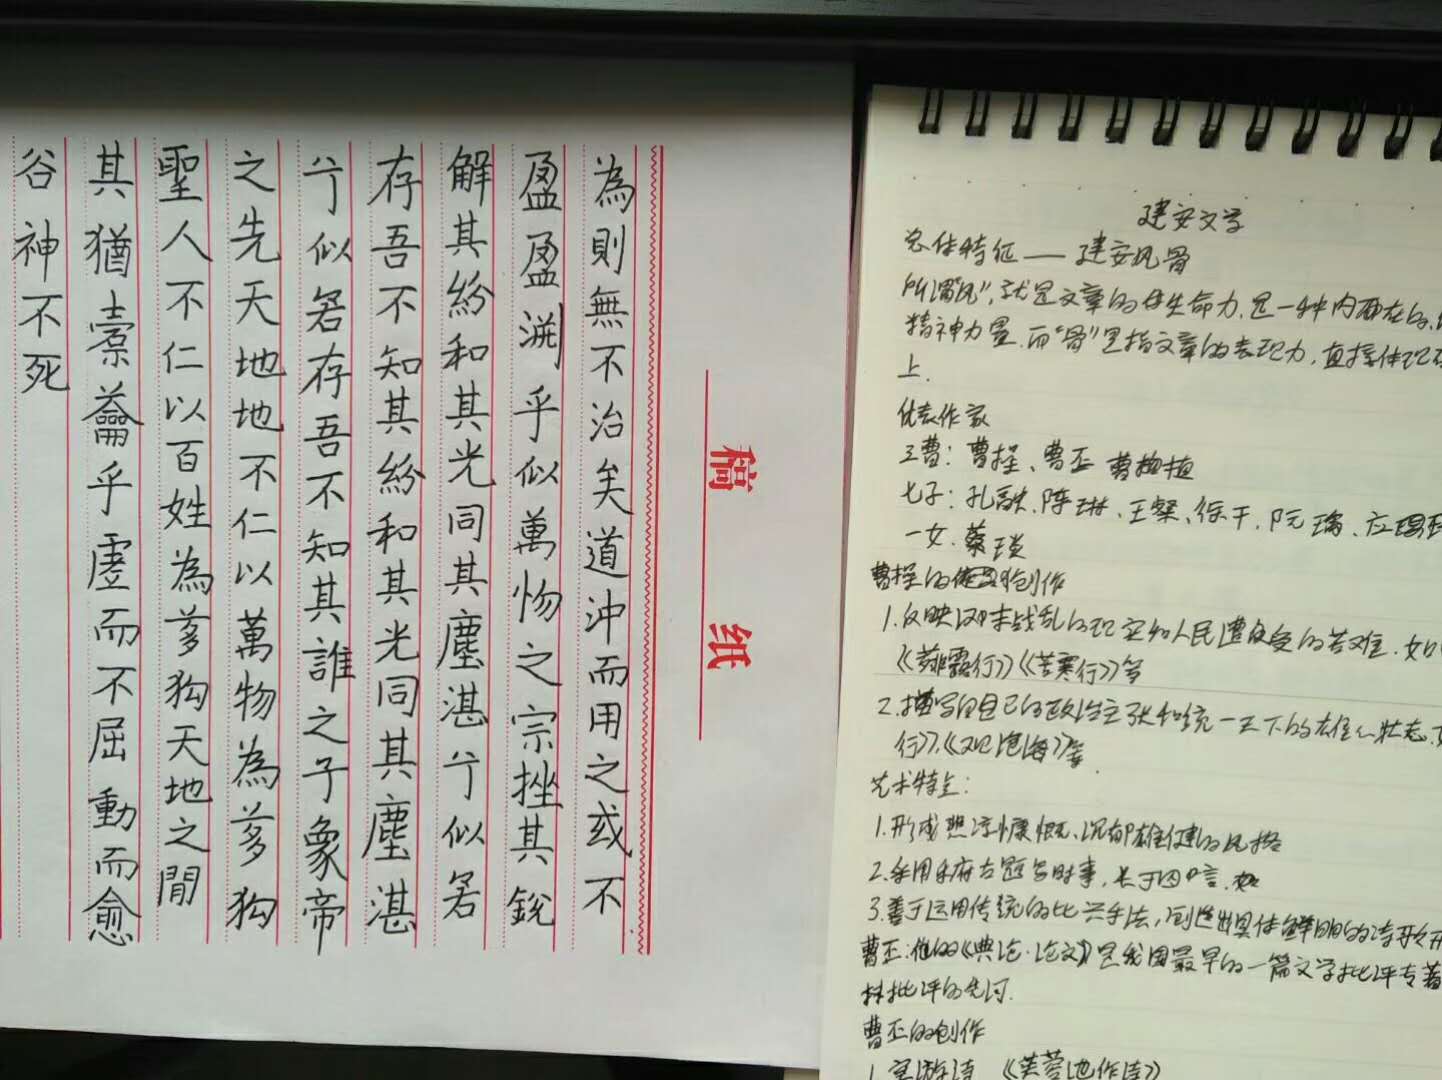 為則無不治矣道沖而用之或不
盈盈淵乎似萬物之宗挫其銳
解其紛和其光同其塵湛兮似若
存吾不知其紛和其光同其塵湛
兮似若存吾不知其誰之子象帝
之先天地地不仁以萬物為芻狗
聖人不仁以百姓為芻狗天地之間
其猶橐籥乎虛而不屈動而愈
谷神不死
稿纸
建安文学
总体特征——建安风骨
所谓"风",就是文章的生命力,是一种内在的
精神力量,而"骨"是指文章的表现力,直接体现在
上.
代表作家
三曹:曹操、曹丕 曹植
七子:孔融、陈琳、王粲、徐干、阮瑀、应玚
一女:蔡琰
曹操的创作
1.反映汉末战乱的现实和人民遭受的苦难.如
《薤露行》《苦寒行》等
2.描写自己的政治主张和统一天下的雄心壮志.
行》、《观沧海》等.
艺术特点:
1.形成悲凉慷慨、沉郁雄健的风格
2.采用乐府古题写时事,长于四言,
3.善于运用传统的比兴手法,创造出具体鲜明的诗歌
曹丕:他的《典论·论文》是我国最早的一篇文学批评专著
批评的先河.
曹丕的创作
1.宴游诗 《芙蓉池作诗》